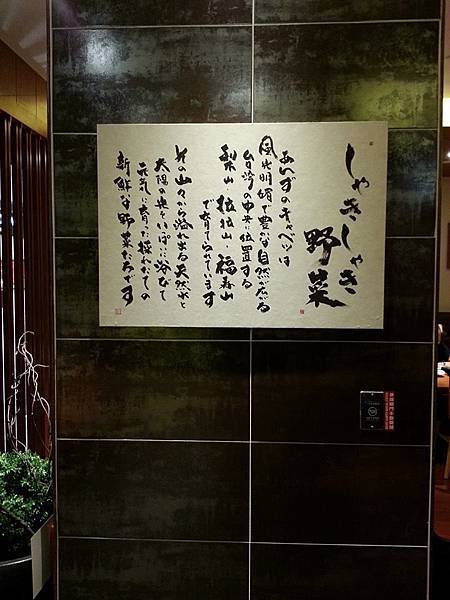 しゃきしゃき
野菜
あいずのキャベツは
風光明媚で豊かな自然が広がる
台湾の中央に位置する
梨山 拉拉山・福寿山
で育てられています
その山々から溢れ出る天然水と
太陽の光をいっぱいに浴びて
元気に育った採れたての
新鮮な野菜たちです